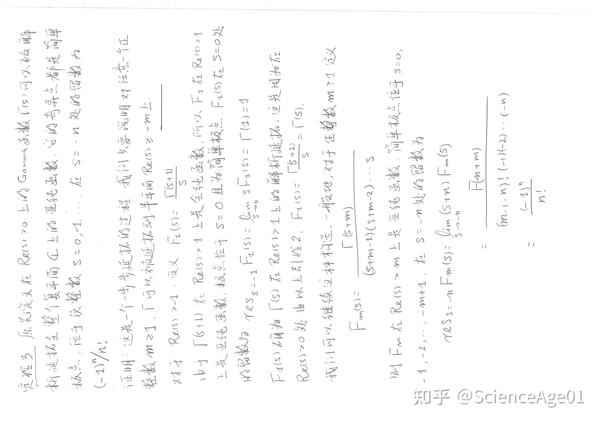 定理3. 原先定义在 Re(s)>0 上的 Gamma函数 Γ(s), 可以被解
析延拓至整个复平面 ℂ 上的亚纯函数, 它的奇异点都是简单
极点, 位于 整数 s=0,-1,... 在 s=-n 处的留数为
(-1)^n/n!
证明: 这是一个一步步延拓的过程. 我们只要说明对任意一个正
整数 m≥1, Γ 可以被延拓到半平面 Re(s)>-m 上.
对于 Re(s)>-1, 定义 F₁(s)= Γ(s+1)/s
由于 Γ(s+1) 在 Re(s)>1 上是全纯函数, 所以 F₁ 在 Re(s)>1
上是亚纯函数, 极点位于 s=0 且为简单极点. F₁(s) 在 s=0 处
的留数为 res_{s=-1} F₁(s)= lim_{s→0} sF₁(s)=Γ(1)=1
F₁(s) 确为 Γ(s) 在 Re(s)>1 上的解析延拓, 这是因为在
Re(s)>0 处, 由以上引理2, F₁(s)= Γ(s+1)/s =Γ(s).
我们可以继续这种构造. 一般地, 对于正整数 m≥1 定义
F_m(s)= Γ(s+m)/(s+m-1)(s+m-2)...s
则 F_m 在 Re(s)>m 上是亚纯函数, 简单极点位于 s=0,
-1,-2,...,-m+1, 在 s=-n 处的留数为
res_{s=-n} F_m(s)= lim_{s→-n} (s+n) F_m(s)
= Γ(-n+m)/(m-1-n)!(-1)(-2)...(-n)
= (-1)^n/n!
知乎 @ScienceAge01